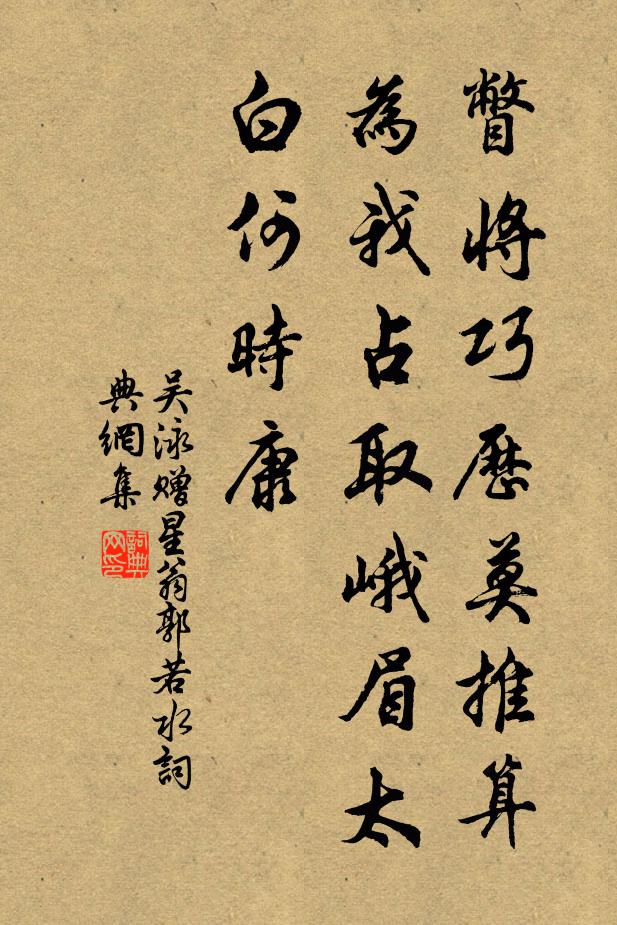 瞥將巧歷莫推算
為我占取峨眉太
白何時康
吳泳贈星翁郭若水詞
典網集
詞典
网印